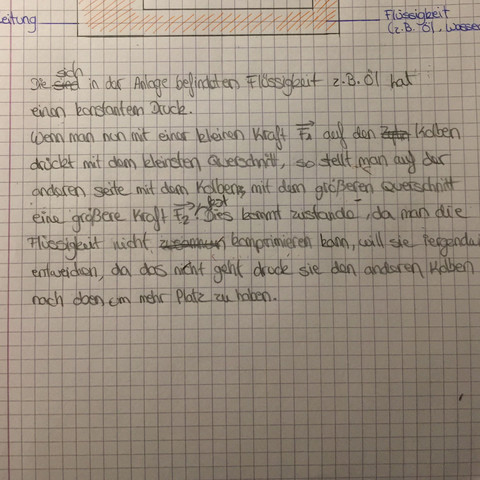 eitung
Flüssigkeit
(z.B. Öl, Wasser
Die sich in der Anlage befindeten Flüssigkeit z.B. Öl hat
einen konstantem Druck.
Wenn man nun mit einer kleinen Kraft F₁ auf den Kolben
drückt mit dem kleinsten Querschnitt, so stellt man auf der
anderen Seite mit dem Kolben, mit dem größeren Querschnitt
eine größere Kraft F₂ fest. Dies kommt zustande, da man die
Flüssigkeit nicht komprimieren kann, will sie
entweichen, da das nicht geht druck sie den anderen Kolben
nach oben um mehr Platz zu haben.